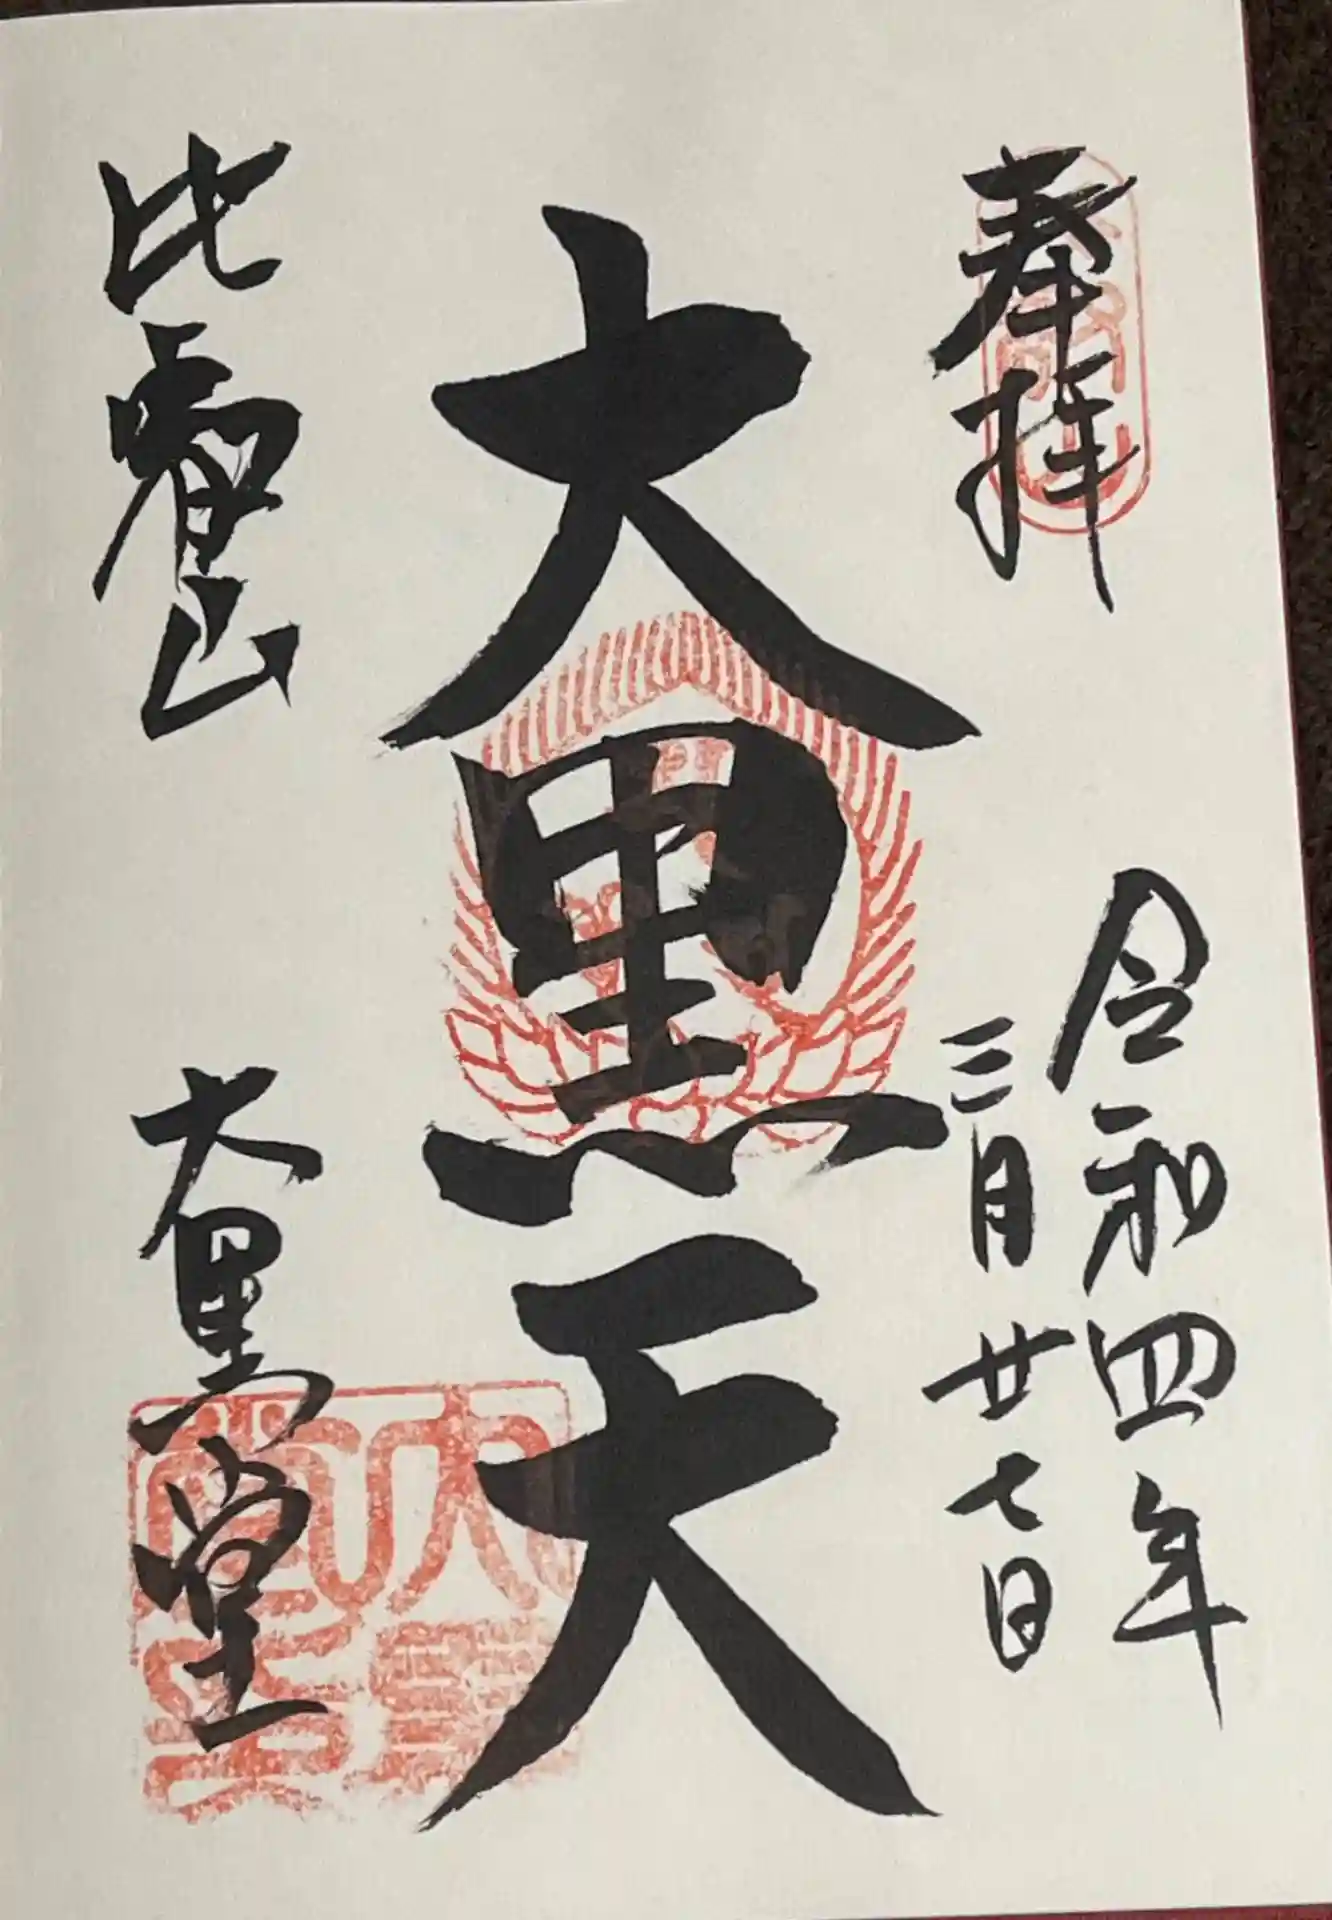 奉拝
令和四年
三月廿七日
大黒天
比叡山
大黒堂